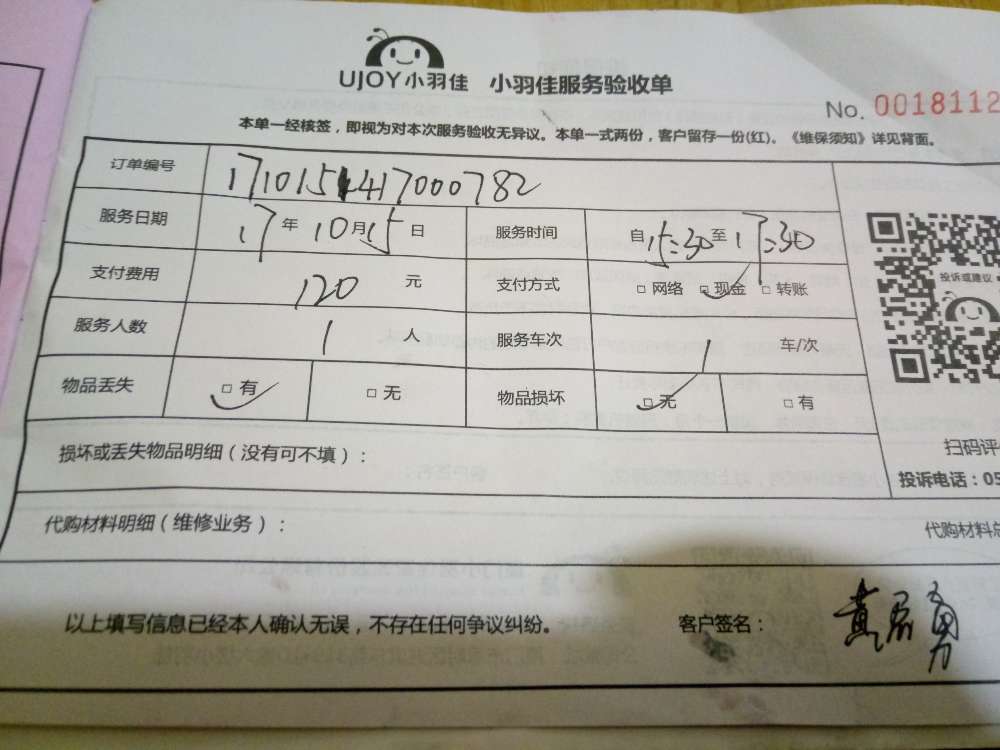 UJOY小羽佳 小羽佳服务验收单
No. 0018112
本单一经核签，即视为对本次服务验收无异议。本单一式两份，客户留存一份(红)。《维保须知》详见背面。
订单编号 171015417000782
服务日期 17年10月15日 服务时间 自15:30至17:30
支付费用 120元 支付方式 □网络 □现金 □转账
投诉或建议
服务人数 1人 服务车次 1车/次
物品丢失 □有 □无 物品损坏 □无 □有
损坏或丢失物品明细（没有可不填）：
扫码评
投诉电话：05
代购材料明细（维修业务）：
代购材料总
以上填写信息已经本人确认无误，不存在任何争议纠纷。 客户签名：黄 勇